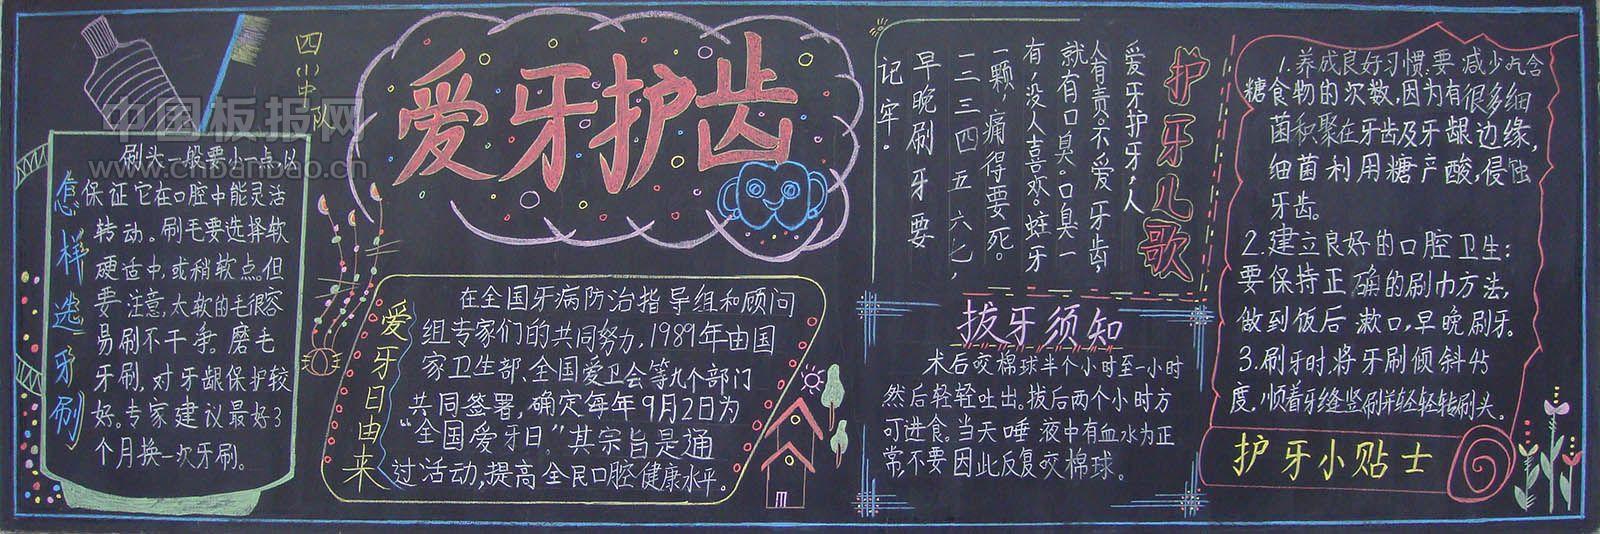 四(4)中队
爱牙护齿
中国板报网
www.cnbanbao.cn
怎样选牙刷
刷头一般要小一点,以
保证它在口腔中能灵活
转动。刷毛要选择软
硬适中,或稍软点。但
要注意,太软的毛很容
易刷不干净。磨毛
牙刷,对牙龈保护较
好。专家建议最好3
个月换一次牙刷。
爱牙日由来
在全国牙病防治指导组和顾问
组专家们的共同努力,1989年由国
家卫生部、全国爱卫会等九个部门
共同签署,确定每年9月2日为
“全国爱牙日”,其宗旨是通
过活动,提高全民口腔健康水平。
护牙儿歌
爱牙护牙,人
人有责。不爱牙齿,
就有口臭。口臭一
有,没人喜欢。蛀牙
一颗,痛得要死。
一二三四五六七,
早晚刷牙要
记牢。
拔牙须知
术后咬棉球半个小时至一小时
然后轻轻吐出。拔后两个小时方
可进食。当天唾液中有血水为正
常,不要因此反复咬棉球。
1.养成良好习惯:要减少吃含
糖食物的次数,因为有很多细
菌积聚在牙齿及牙龈边缘,
细菌利用糖产酸,侵蚀
牙齿。
2.建立良好的口腔卫生:
要保持正确的刷巾方法,
做到饭后漱口,早晚刷牙。
3.刷牙时,将牙刷倾斜45
度,顺着牙缝竖刷并轻轻转刷头。
护牙小贴士